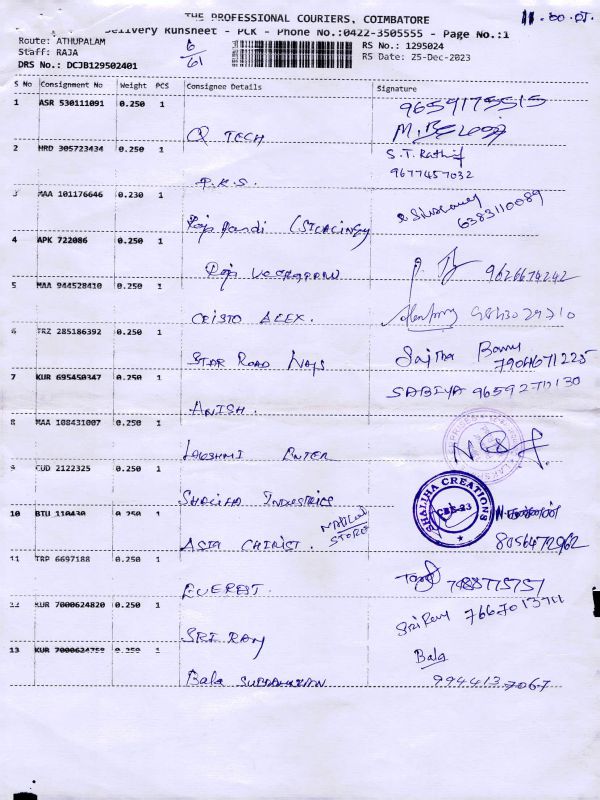 THE PROFESSIONAL COURIERS, COIMBATORE
Delivery Runsheet - PCK - Phone No.:0422-3505555 - Page No.:1
Route: ATHUPALAM
Staff: RAJA
DRS No.: DCJB129502401
6/61
RS No.: 1295024
RS Date: 25-Dec-2023
S No Consignment No Weight PCS Consignee Details Signature
1 ASR 530111091 0.250 1 Q TECH 9659175515
2 HRD 305723434 0.250 1 P.K.S. S.T. Rathif 9677457032
3 MAA 101176646 0.230 1 Raja Pandi 6383110089
4 APK 722086 0.250 1 Raja 9626674242
5 MAA 944528410 0.250 1 CRISTO ALEX. 9843029710
6 TRZ 285186392 0.250 1 STAR ROAD Ways Sajitha Banu 7904671225
7 KUR 695450347 0.250 1 ANISH. SABIYA 9659271130
8 MAA 108431007 0.250 1 LAKSHMI ENTER
9 CUD 2122325 0.250 1 SHALIHA INDUSTRIES
SHALIHA CREATIONS
CBE-23
10 BTU 110430 0.250 1 ASIA CHRIST. STORE 8056472962
11 TRP 6697188 0.250 1 EVEREST. 7088775757
12 KUR 7000624820 0.250 1 SRI RAM Sri Ram 7667013711
13 KUR 7000624759 0.250 1 Bala SUBRAMANIAN Bala
9944137067